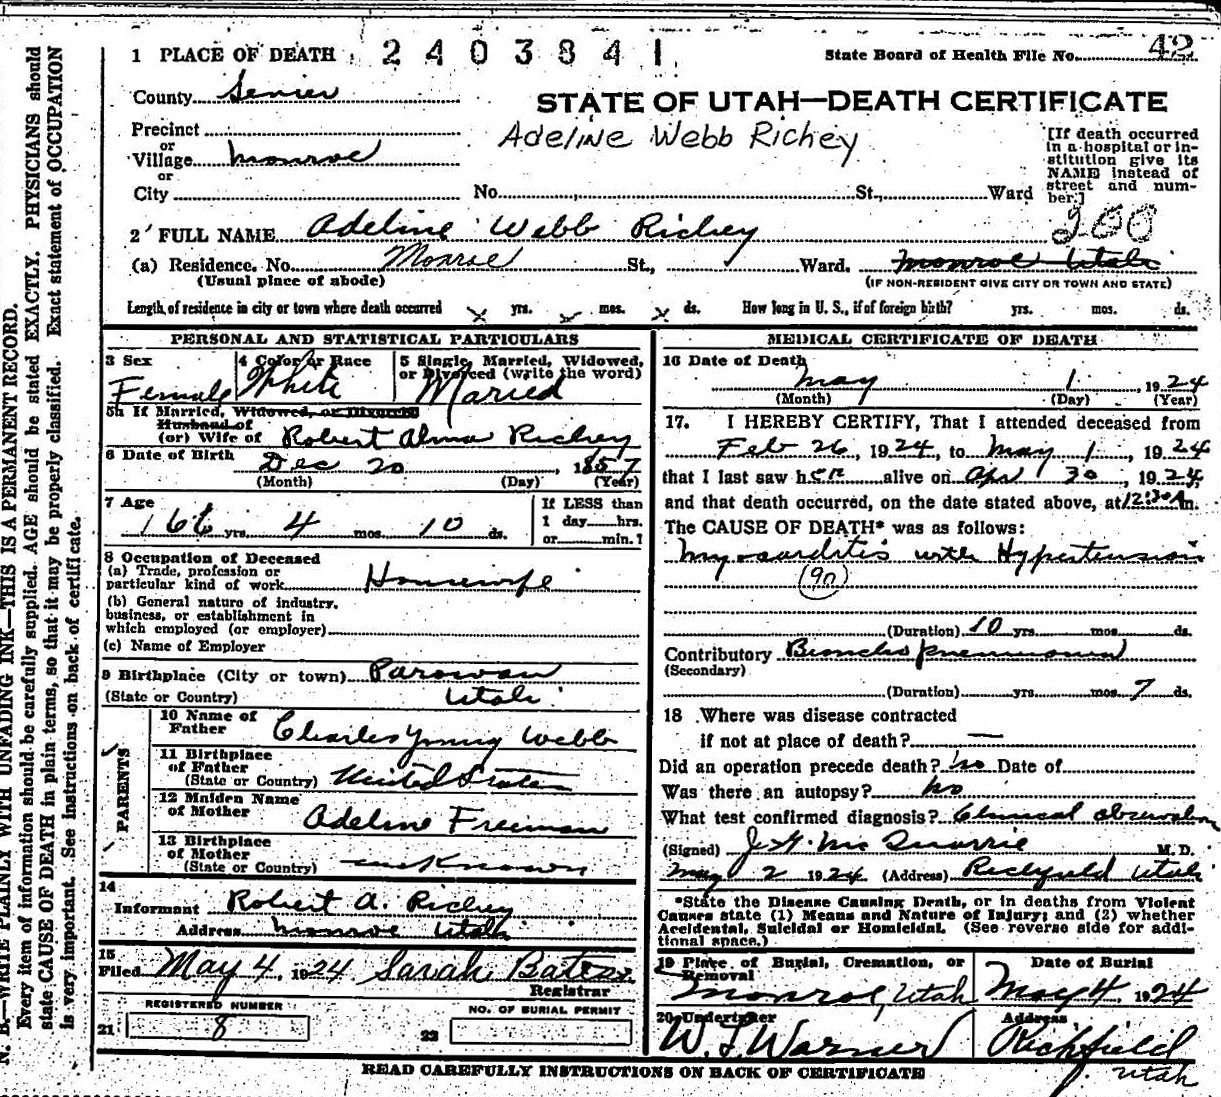 1 PLACE OF DEATH 2403841 State Board of Health File No. 42
County Sevier STATE OF UTAH—DEATH CERTIFICATE
Precinct Adeline Webb Richey
or
Village Monroe
or
City No. St., Ward
[If death occurred
in a hospital or in-
stitution give its
NAME instead of
street and num-
ber.]
200
2 FULL NAME Adeline Webb Richey
(a) Residence. No. Monroe St., Ward. Monroe Utah
(Usual place of abode) (IF NON-RESIDENT GIVE CITY OR TOWN AND STATE)
Length of residence in city or town where death occurred x yrs. x mos. x ds. How long in U. S., if of foreign birth? yrs. mos. ds.
PERSONAL AND STATISTICAL PARTICULARS
3 Sex 4 Color or Race 5 Single, Married, Widowed,
or Divorced (write the word)
Female White Maried
5a If Married, Widowed, or Divorced
Husband of
(or) Wife of Robert Alma Richey
6 Date of Birth Dec 20, 1857
(Month) (Day) (Year)
7 Age If LESS than
66 yrs. 4 mos. 10 ds. 1 day hrs.
or min.?
8 Occupation of Deceased
(a) Trade, profession or
particular kind of work Housewife
(b) General nature of industry,
business, or establishment in
which employed (or employer)
(c) Name of Employer
9 Birthplace (City or town) Parowan
(State or Country) Utah
PARENTS
10 Name of
Father Charles Young Webb
11 Birthplace
of Father
(State or Country) United States
12 Maiden Name
of Mother Adeline Freeman
13 Birthplace
of Mother
(State or Country) unknown
14
Informant Robert A. Richey
Address Monroe Utah
15
Filed May 4, 1924 Sarah Bates
Registrar
REGISTERED NUMBER NO. OF BURIAL PERMIT
21 8 22
MEDICAL CERTIFICATE OF DEATH
16 Date of Death
May 1, 1924
(Month) (Day) (Year)
17. I HEREBY CERTIFY, That I attended deceased from
Feb 26, 1924, to May 1, 1924
that I last saw her alive on Apr 30, 1924
and that death occurred, on the date stated above, at 12:30 A m.
The CAUSE OF DEATH* was as follows:
Myocarditis with Hypertension
(90)
(Duration) 10 yrs. mos. ds.
Contributory Broncho pneumonia
(Secondary)
(Duration) yrs. mos. 7 ds.
18 Where was disease contracted
if not at place of death? —
Did an operation precede death? No Date of
Was there an autopsy? No
What test confirmed diagnosis? Clinical observation
(Signed) J. G. McQuarrie M. D.
May 2 1924 (Address) Richfield Utah
*State the Disease Causing Death, or in deaths from Violent
Causes state (1) Means and Nature of Injury; and (2) whether
Accidental, Suicidal or Homicidal. (See reverse side for addi-
tional space.)
19 Place of Burial, Cremation, or Date of Burial
Removal
Monroe, Utah May 4, 1924
20 Undertaker Address
W. L. Warner Richfield
Utah
READ CAREFULLY INSTRUCTIONS ON BACK OF CERTIFICATE
N. B.—WRITE PLAINLY WITH UNFADING INK—THIS IS A PERMANENT RECORD.
Every item of information should be carefully supplied. AGE should be stated EXACTLY. PHYSICIANS should
state CAUSE OF DEATH in plain terms, so that it may be properly classified. Exact statement of OCCUPATION
is very important. See instructions on back of certificate.